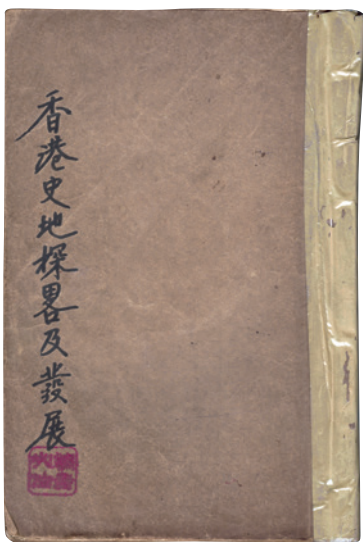 香港史地探畧及發展